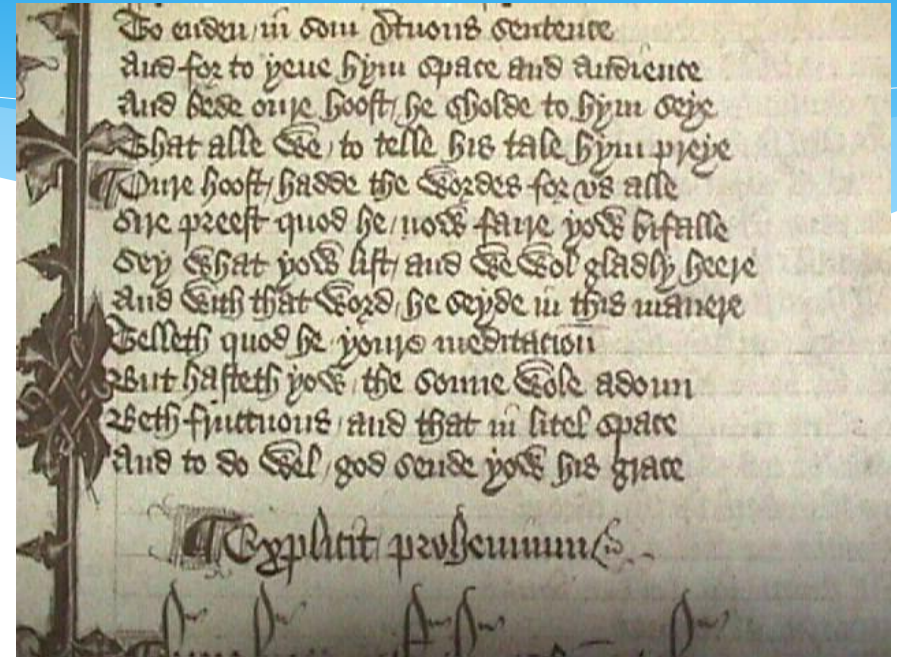 To enden / in som v̉tuous sentence
And for to yeue hym space and audience
And bede oure hoost / he sholde to hym seye
That alle we / to telle his tale hym preye
¶ Oure hoost / hadde the wordes for vs alle
Sire preest quod he / now faire yow bifalle
Sey what yow list / and we wol gladly heere
And with that word / he seyde in this manere
Telleth quod he / youre meditacioun
But hasteth yow / the sonne wole adoun
Beth fructuous / and that in litel space
And to do wel / god sende yow his grace
¶ Explicit prohemium